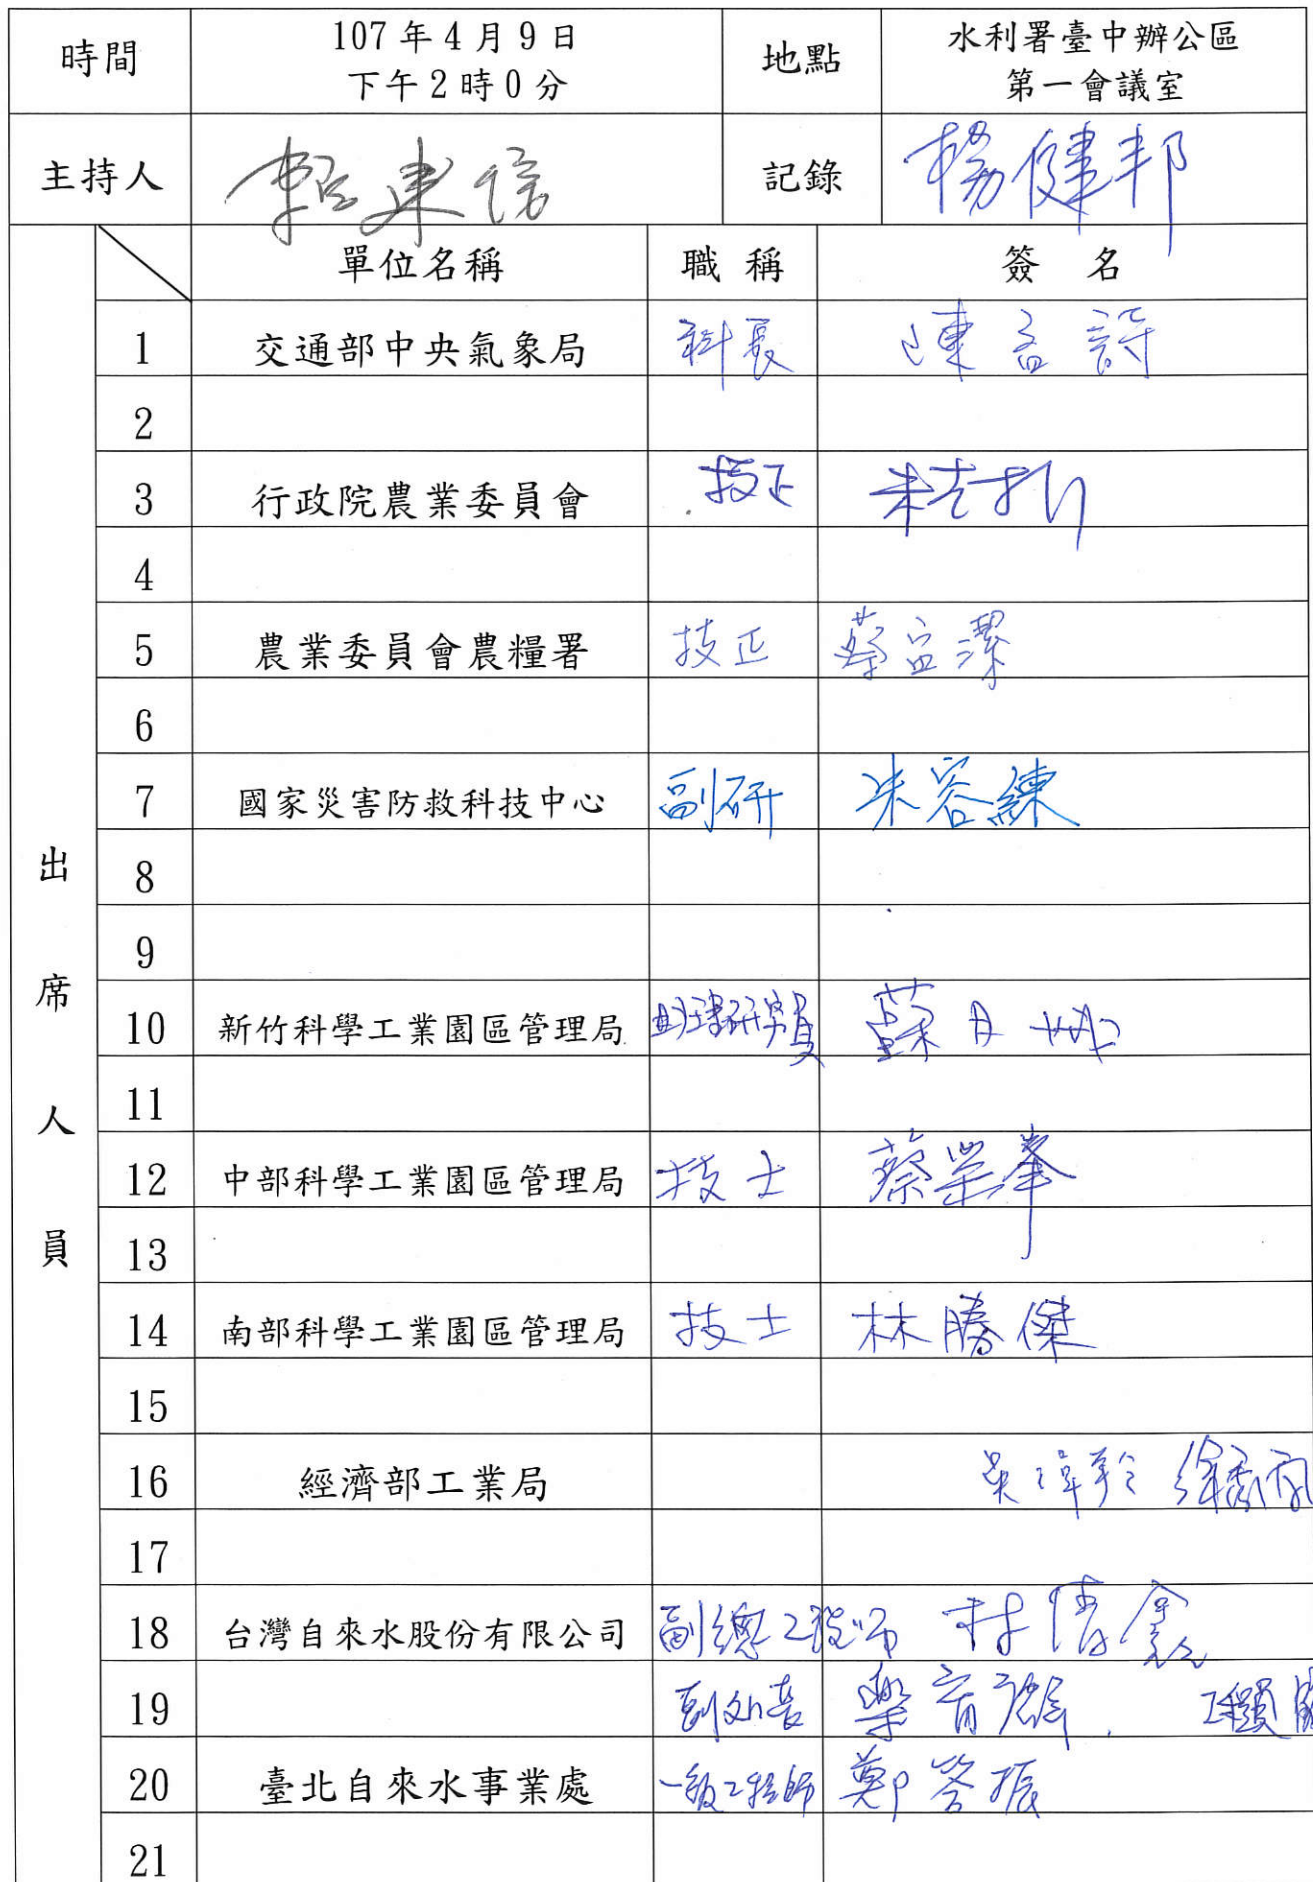 時間 107年4月9日 地點 水利署臺中辦公區
下午2時0分 第一會議室
主持人 賴建信 記錄 楊健邦
單位名稱 職稱 簽名
出席人員
1 交通部中央氣象局 科長 陳孟詩
2
3 行政院農業委員會 技正
4
5 農業委員會農糧署 技正 蔡宜潔
6
7 國家災害防救科技中心 副研 朱容練
8
9
10 新竹科學工業園區管理局 助理研究員 蘇月
11
12 中部科學工業園區管理局 技士 蔡榮峯
13
14 南部科學工業園區管理局 技士 林勝傑
15
16 經濟部工業局 吳
17
18 台灣自來水股份有限公司 副總工程師 林清鑫
19 副處長
20 臺北自來水事業處 一級工程師 鄭答振
21